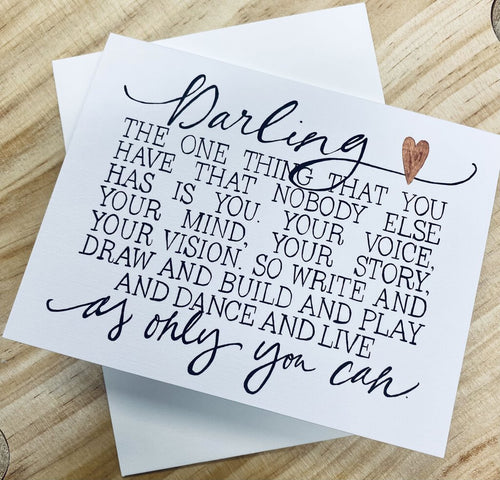 Darling
THE ONE THING THAT YOU
HAVE THAT NOBODY ELSE
HAS IS YOU. YOUR VOICE,
YOUR MIND, YOUR STORY,
YOUR VISION. SO WRITE AND
DRAW AND BUILD AND PLAY
AND DANCE AND LIVE
as only you can.